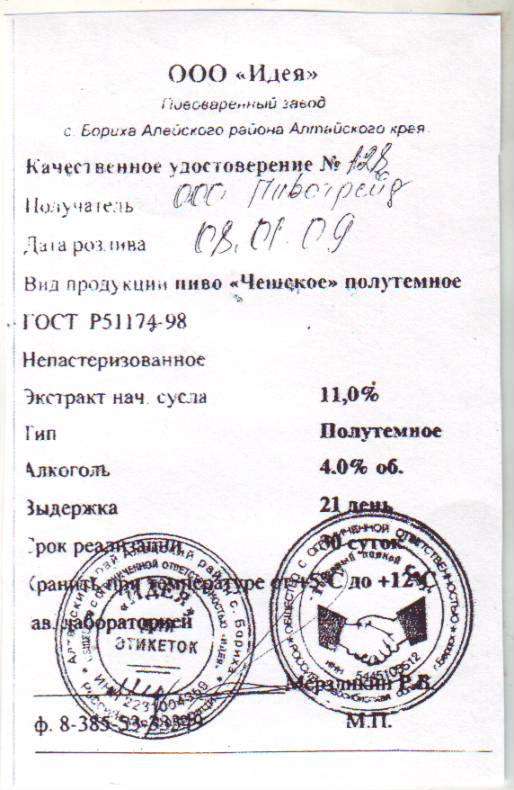 ООО «Идея»
Пивоваренный завод
с. Бориха Алейского района Алтайского края.
Качественное удостоверение № 128
Получатель ООО Пивотрейд
Дата розлива 08.01.09
Вид продукции пиво «Чешское» полутемное
ГОСТ Р51174-98
Непастеризованное
Экстракт нач. сусла 11,0%
Тип Полутемное
Алкоголь 4.0% об.
Выдержка 21 день
Срок реализации 30 суток
Хранить при температуре от +5°С до +12°С
Зав. лабораторией
«ИДЕЯ»
ДЛЯ
ЭТИКЕТОК
ИНН 2231004369
ОБЩЕСТВО С ОГРАНИЧЕННОЙ ОТВЕТСТВЕННОСТЬЮ
ИНН
Мерзликин
ф. 8-385-53-
М.П.